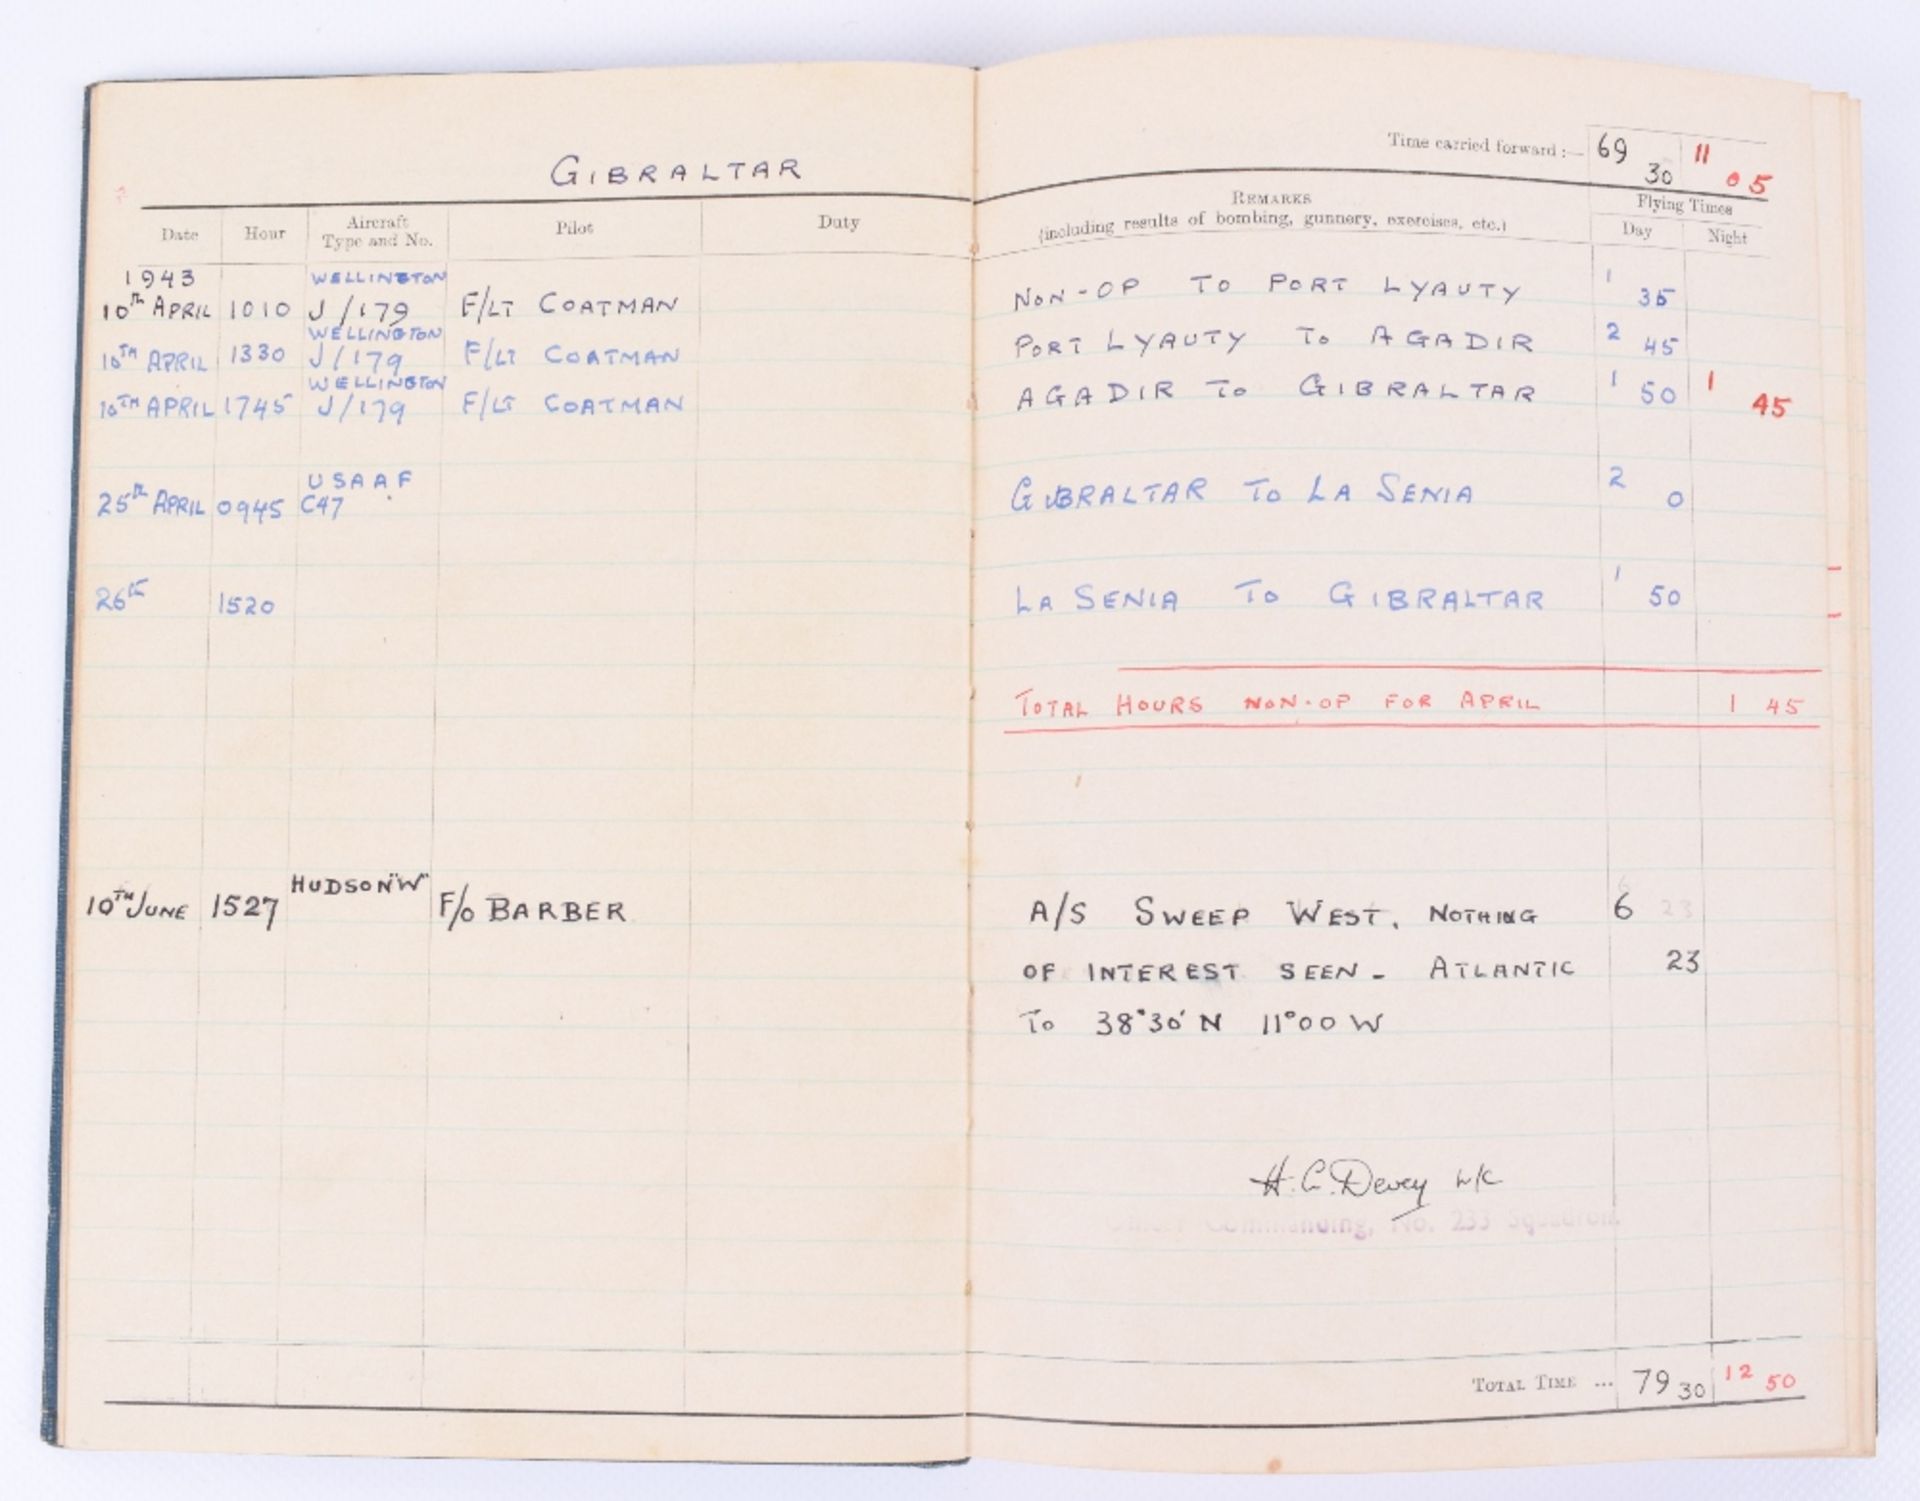 GIBRALTAR
Time carried forward :— 69 30 11 05
Date Hour Aircraft Type and No. Pilot Duty
REMARKS
(including results of bombing, gunnery, exercises, etc.)
Flying Times
Day Night
1943 WELLINGTON
10th APRIL 1010 J/179 F/LT COATMAN NON-OP TO PORT LYAUTY 1 35
WELLINGTON
10TH APRIL 1330 J/179 F/LT COATMAN PORT LYAUTY TO AGADIR 2 45
WELLINGTON
10TH APRIL 1745 J/179 F/LT COATMAN AGADIR TO GIBRALTAR 1 50 1 45
USAAF
25th APRIL 0945 C47 GIBRALTAR TO LA SENIA 2 0
26th 1520 LA SENIA TO GIBRALTAR 1 50
TOTAL HOURS NON-OP FOR APRIL 1 45
HUDSON "W"
10TH JUNE 1527 F/O BARBER A/S SWEEP WEST. NOTHING 6
OF INTEREST SEEN - ATLANTIC 23
TO 38°30' N 11°00 W
H. C. Dewey W/C
Officer Commanding, No. 233 Squadron
TOTAL TIME ... 79 30 12 50